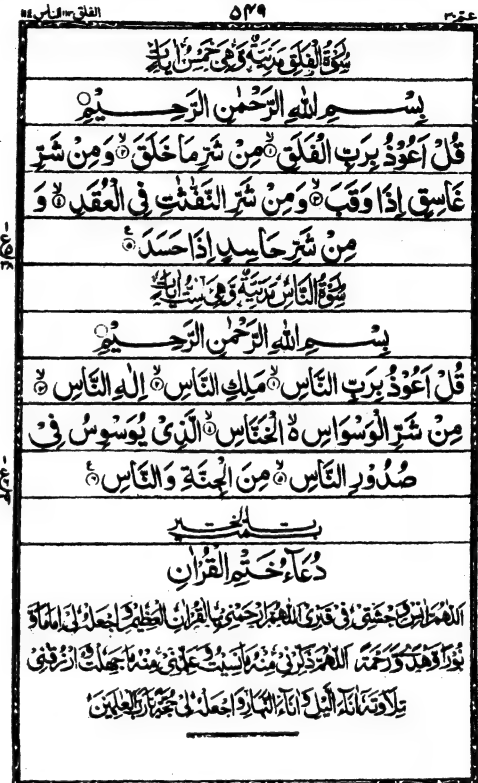 عمّ ٣٠ ٥٤٩ الفلق ١١٣ الناس ١١٤
سُوْرَةُ الْفَلَقِ مَدَنِيَّةٌ وَّهِىَ خَمْسُ اٰيَاتٍ
بِسْمِ اللّٰهِ الرَّحْمٰنِ الرَّحِيْمِ
قُلْ اَعُوْذُ بِرَبِّ الْفَلَقِۙ۝۱ مِنْ شَرِّ مَا خَلَقَۙ۝۲ وَمِنْ شَرِّ
غَاسِقٍ اِذَا وَقَبَۙ۝۳ وَمِنْ شَرِّ النَّفّٰثٰتِ فِى الْعُقَدِۙ۝۴ وَ
مِنْ شَرِّ حَاسِدٍ اِذَا حَسَدَ۝۵
سُوْرَةُ النَّاسِ مَدَنِيَّةٌ وَّهِىَ سِتُّ اٰيَاتٍ
بِسْمِ اللّٰهِ الرَّحْمٰنِ الرَّحِيْمِ
قُلْ اَعُوْذُ بِرَبِّ النَّاسِۙ۝۱ مَلِكِ النَّاسِۙ۝۲ اِلٰهِ النَّاسِۙ۝۳
مِنْ شَرِّ الْوَسْوَاسِ ۙ۬ الْخَنَّاسِۙ۝۴ الَّذِىْ يُوَسْوِسُ فِىْ
صُدُوْرِ النَّاسِۙ۝۵ مِنَ الْجِنَّةِ وَالنَّاسِ۝۶
دُعَآءُ خَتْمِ الْقُرْاٰنِ
اَللّٰهُمَّ اٰنِسْ وَحْشَتِىْ فِىْ قَبْرِىْ اَللّٰهُمَّ ارْحَمْنِىْ بِالْقُرْاٰنِ الْعَظِيْمِ وَاجْعَلْهُ لِىْ اِمَامًا وَّ
نُوْرًا وَّهُدًى وَّرَحْمَةً اَللّٰهُمَّ ذَكِّرْنِىْ مِنْهُ مَا نَسِيْتُ وَعَلِّمْنِىْ مِنْهُ مَا جَهِلْتُ وَارْزُقْنِىْ
تِلَاوَتَهٗ اٰنَآءَ الَّيْلِ وَاٰنَآءَ النَّهَارِ وَاجْعَلْهُ لِىْ حُجَّةً يَّا رَبَّ الْعٰلَمِيْنَ